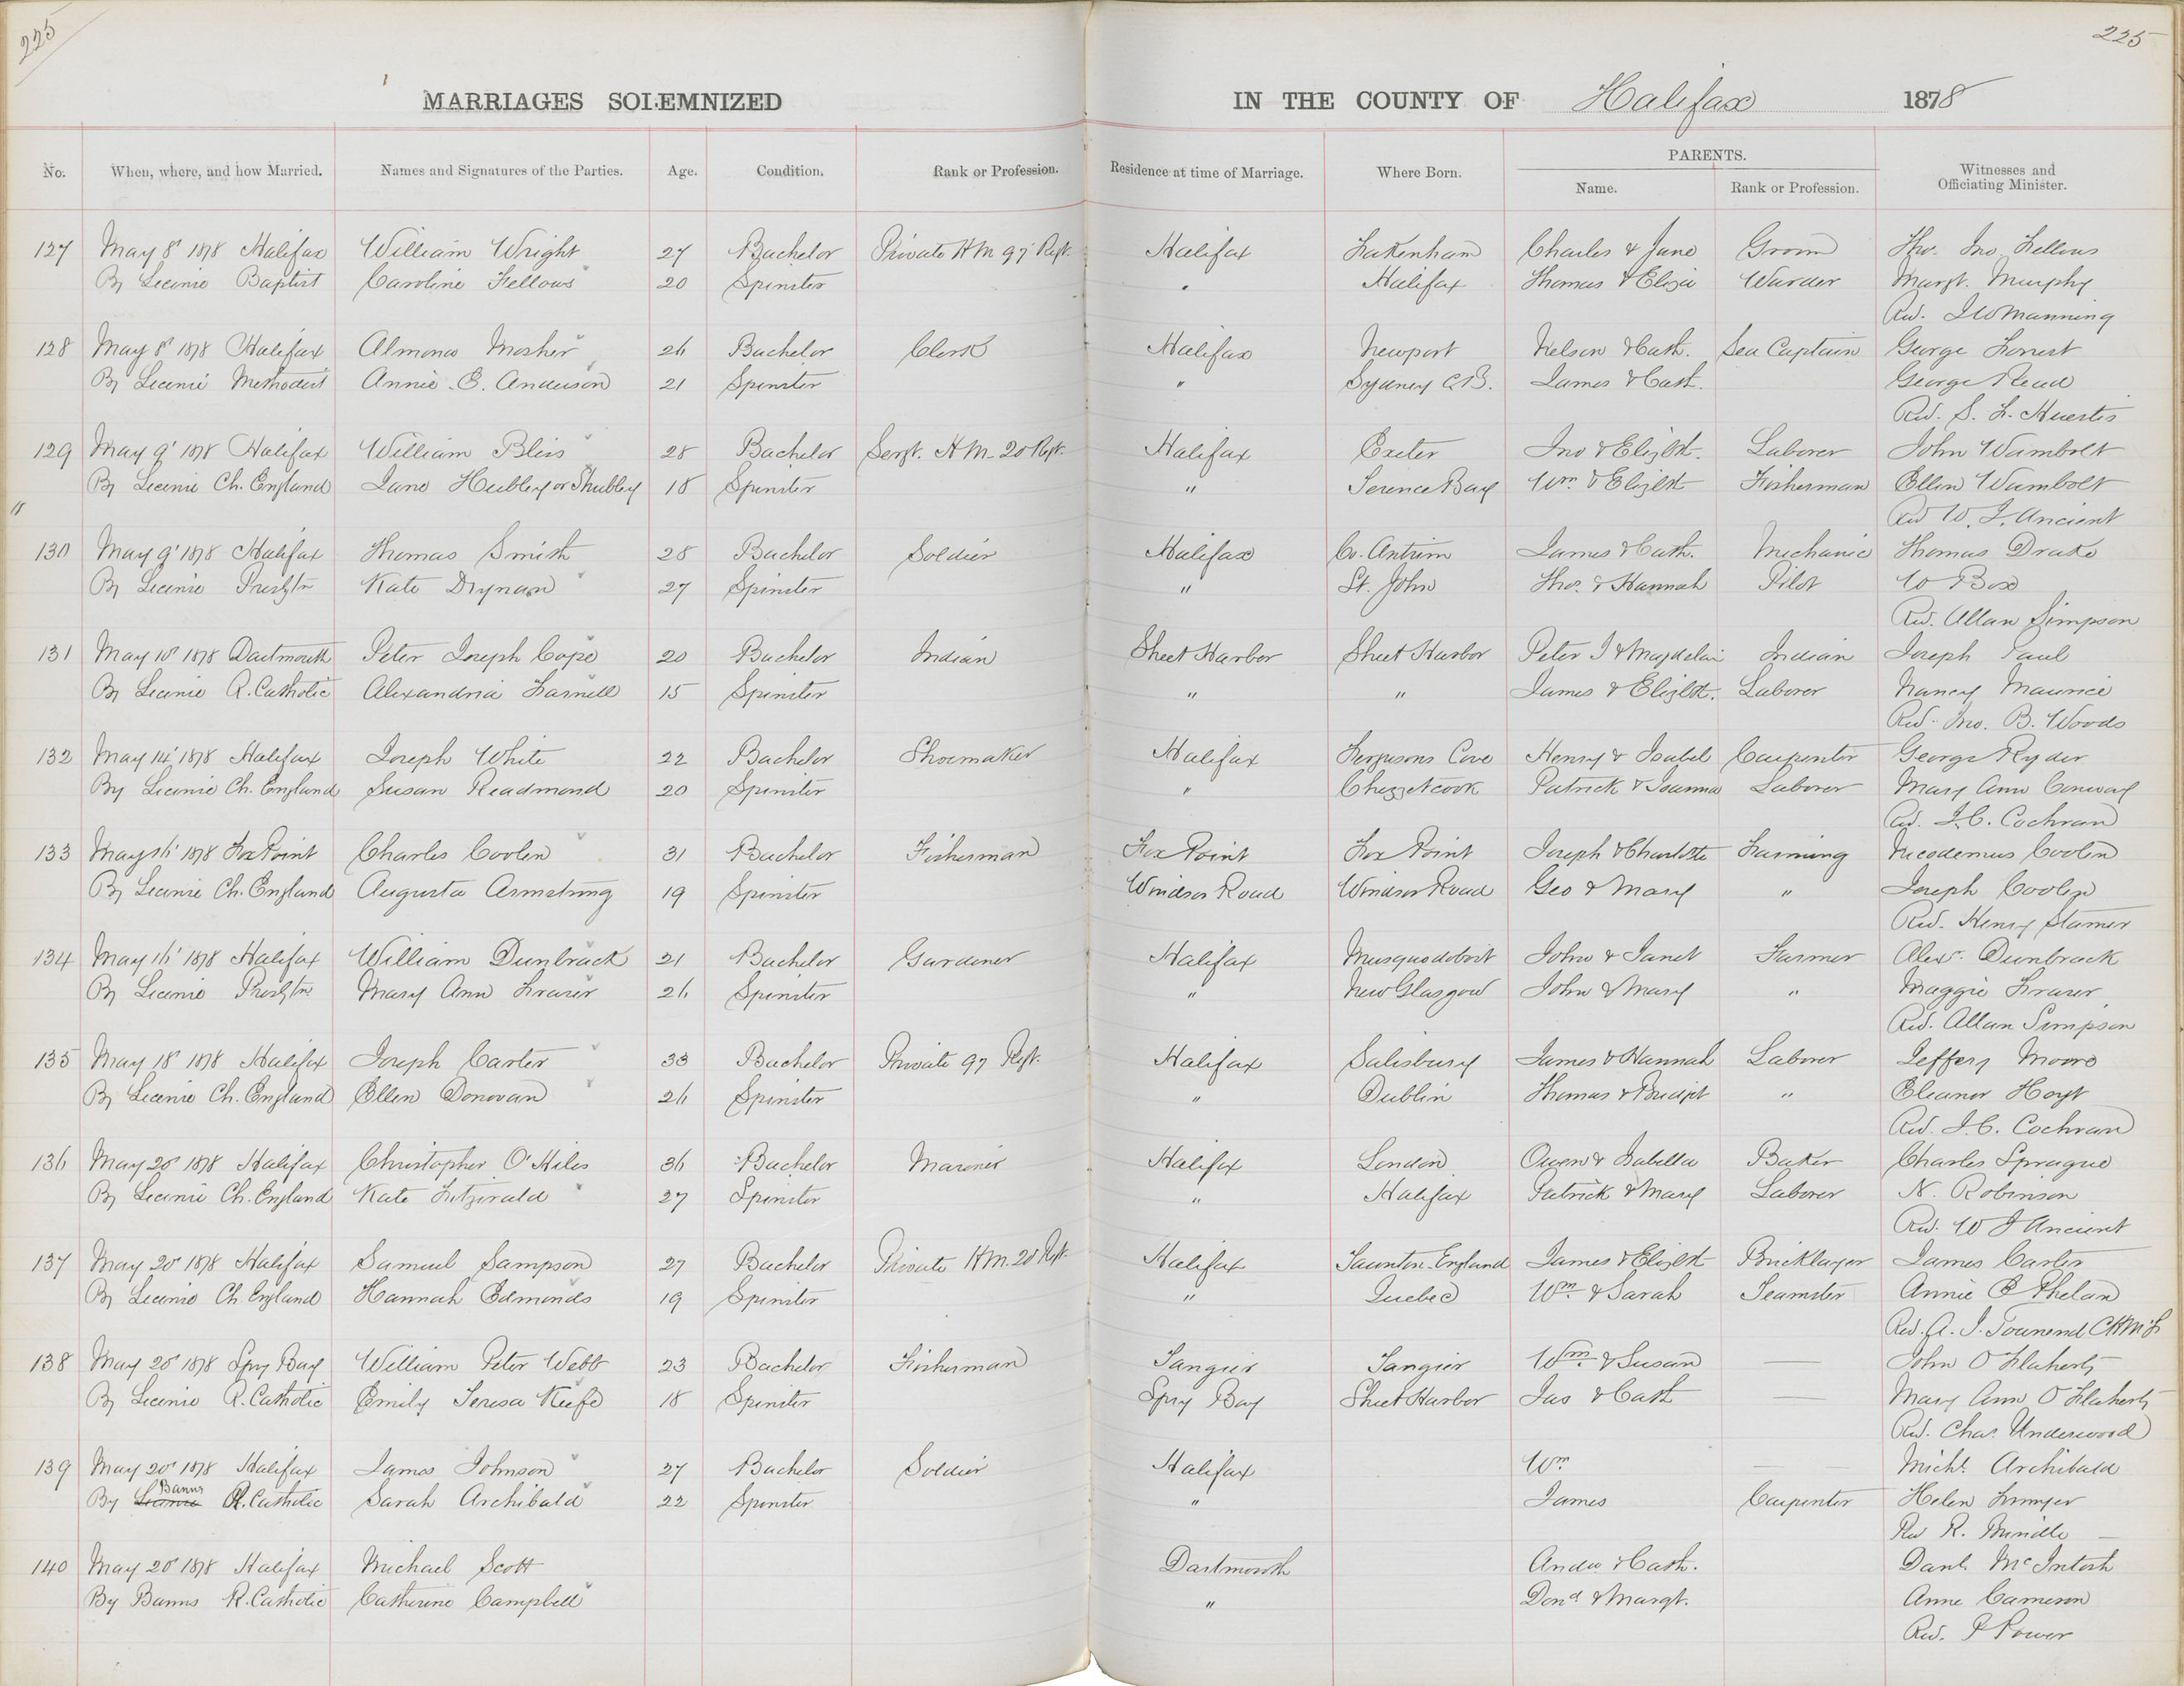 225
225
MARRIAGES SOLEMNIZED IN THE COUNTY OF Halifax 1878
No. When, where, and how Married. Names and Signatures of the Parties. Age. Condition. Rank or Profession. Residence at time of Marriage. Where Born. PARENTS. Name. Rank or Profession. Witnesses and Officiating Minister.
127 May 8' 1878 Halifax William Wright 27 Bachelor Private HM 97' Regt. Halifax Fakenham Charles & Jane Groom Tho. Jno. Fellows
By Licence Baptist Caroline Fellows 20 Spinster " Halifax Thomas & Eliza Warder Margt. Murphy
Rev. J W Manning
128 May 8' 1878 Halifax Almona Mosher 26 Bachelor Clerk Halifax Newport Nelson & Cath. Sea Captain George Forrest
By Licence Methodist Annie E. Anderson 21 Spinster " Sydney C.B. James & Cath. George Read
Rev. S. F. Huestis
129 May 9' 1878 Halifax William Bliss 28 Bachelor Sergt. H M. 20 Regt. Halifax Exeter Jno & Elizbth. Laborer John Wambolt
By Licence Ch. England Jane Hubley or Shubley 18 Spinster " Terence Bay Wm & Elizbth Fisherman Ellen Wambolt
" Rev W. J. Ancient
130 May 9' 1878 Halifax Thomas Smith 28 Bachelor Soldier Halifax Co. Antrim James & Cath. Mechanic Thomas Drake
By Licence Presbytn Kate Drynan 27 Spinster " St. John Tho. & Hannah Pilot W Box
Rev. Allan Simpson
131 May 10' 1878 Dartmouth Peter Joseph Cope 20 Bachelor Indian Sheet Harbor Sheet Harbor Peter J & Magdelain Indian Joseph Paul
By Licence R. Catholic Alexandria Farnell 15 Spinster " " James & Elizbth. Laborer Nancy Maurice
Rev. Jno. B. Woods
132 May 14' 1878 Halifax Joseph White 22 Bachelor Shoemaker Halifax Fergusons Cove Henry & Isabel Carpenter George Ryder
By Licence Ch. England Susan Readmond 20 Spinster " Chezzetcook Patrick & Joanna Laborer Mary Ann Conway
Rev. J. C. Cochran
133 May 16' 1878 Fox Point Charles Coolen 31 Bachelor Fisherman Fox Point Fox Point Joseph & Charlotte Farming Nicodemus Coolen
By Licence Ch. England Augusta Armstrong 19 Spinster Windsor Road Windsor Road Geo & Mary " Joseph Coolen
Rev. Henry Stamer
134 May 16' 1878 Halifax William Dunbrack 21 Bachelor Gardener Halifax Musquodoboit John & Janet Farmer Alexr. Dunbrack
By Licence Presbytn Mary Ann Fraser 26 Spinster " New Glasgow John & Mary " Maggie Fraser
Rev. Allan Simpson
135 May 18' 1878 Halifax Joseph Carter 33 Bachelor Private 97 Regt. Halifax Salisbury James & Hannah Laborer Jeffery Moore
By Licence Ch. England Ellen Donovan 26 Spinster " Dublin Thomas & Bridget " Eleanor Hoyt
Rev. J. C. Cochran
136 May 20' 1878 Halifax Christopher O'Hiles 36 Bachelor Mariner Halifax London Owen & Isabella Baker Charles Sprague
By Licence Ch. England Kate Fitzgerald 27 Spinster " Halifax Patrick & Mary Laborer N. Robinson
Rev. W J Ancient
137 May 20' 1878 Halifax Samuel Sampson 27 Bachelor Private H M. 20 Regt. Halifax Taunton England James & Elizbth Bricklayer James Carter
By Licence Ch. England Hannah Edmonds 19 Spinster " Quebec Wm. & Sarah Teamster Annie E Phelan
Rev. A. J. Townend
138 May 20' 1878 Spry Bay William Peter Webb 23 Bachelor Fisherman Tangier Tangier Wm. & Susan — John O Flaherty
By Licence R. Catholic Emily Teresa Keefe 18 Spinster Spry Bay Sheet Harbor Jas & Cath — Mary Ann O Flaherty
Rev. Chas. Underwood
139 May 20' 1878 Halifax James Johnson 27 Bachelor Soldier Halifax Wm — Michl. Archibald
By Licence Banns R. Catholic Sarah Archibald 22 Spinster " James Carpenter Helen
Rev R.
140 May 20' 1878 Halifax Michael Scott Dartmouth Andw & Cath. Danl. McIntosh
By Banns R. Catholic Catherine Campbell " Dond & Margt. Anne Cameron
Rev. P Power